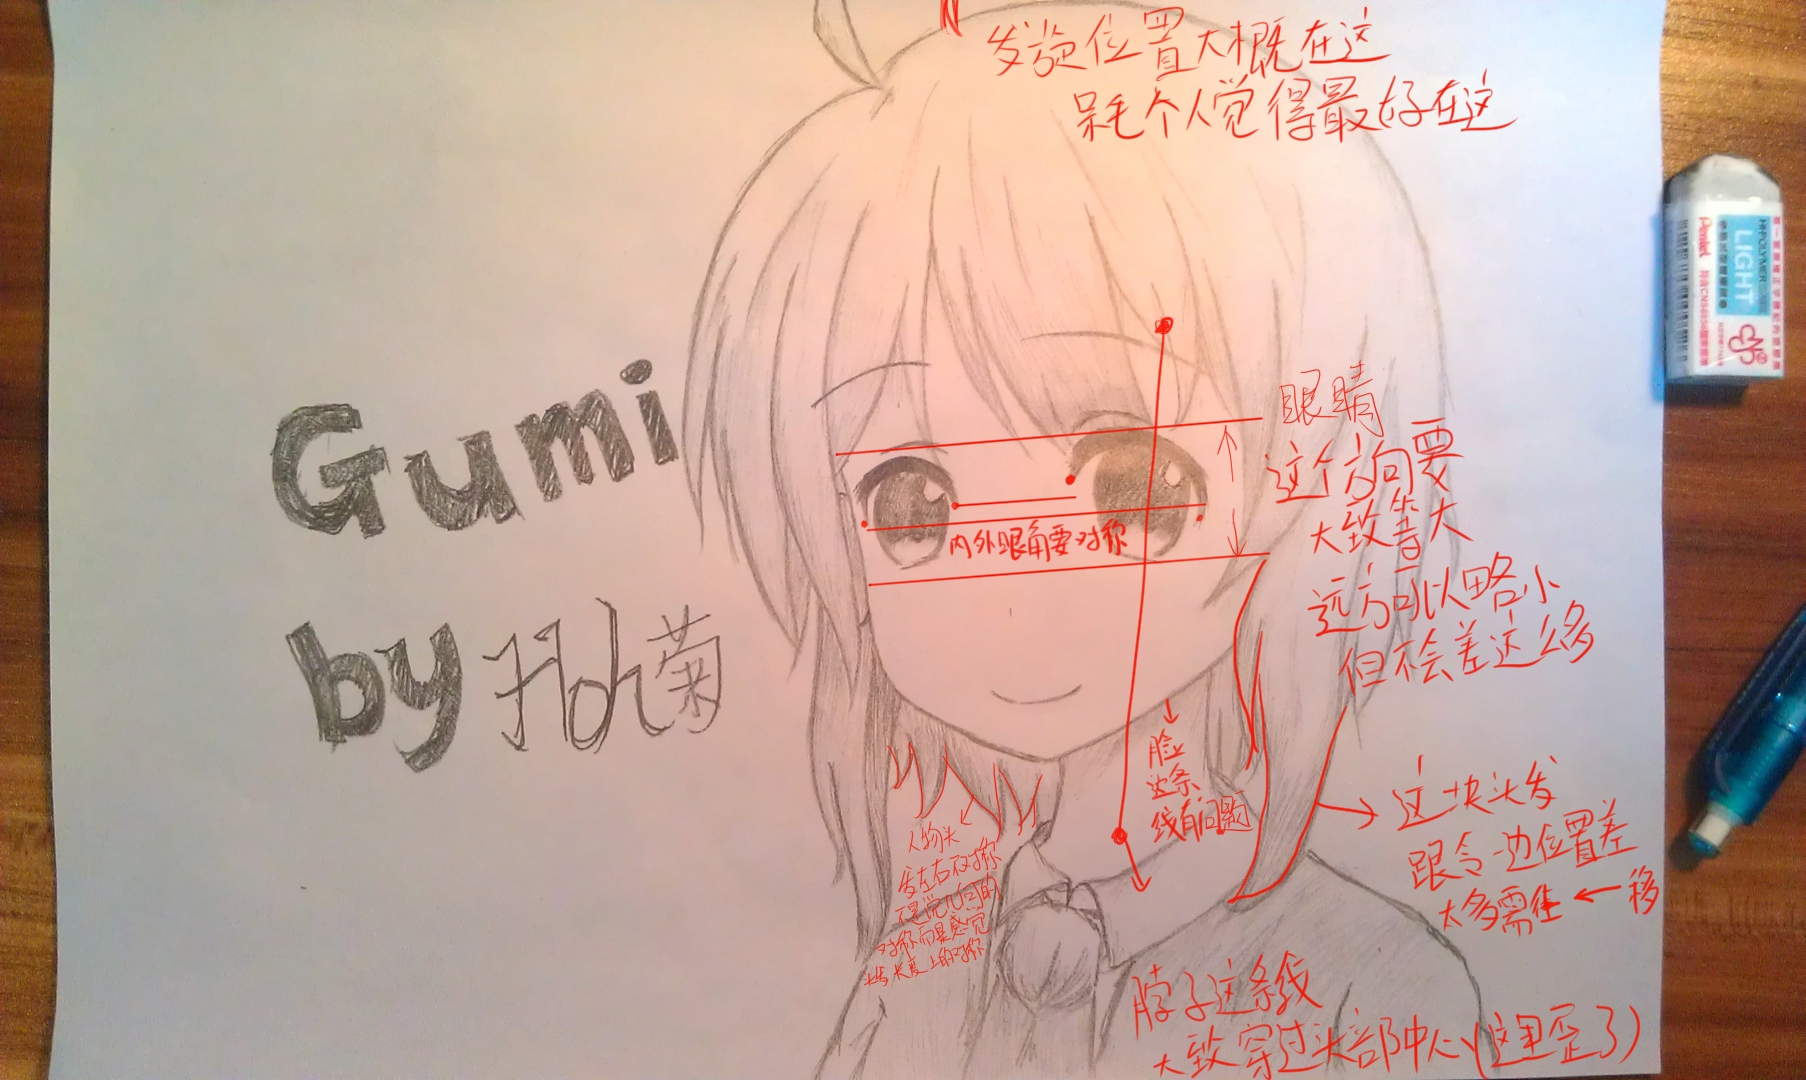 发旋位置大概在这
呆毛个人觉得最好在这
Gumi
by
菊
眼睛
这个方向要
大致等大
远方可以略小
但不会差这么多
内外眼角要对称
脸
边条
线有问题
这块头发
跟令一边位置差
太多需往←移
人物头
发左右不对称
不是说几何的
对称而是感觉
长度上的对称
脖子这条线
大致穿过头部中心(这里歪了)
Pentel
HI-POLYMER
LIGHT